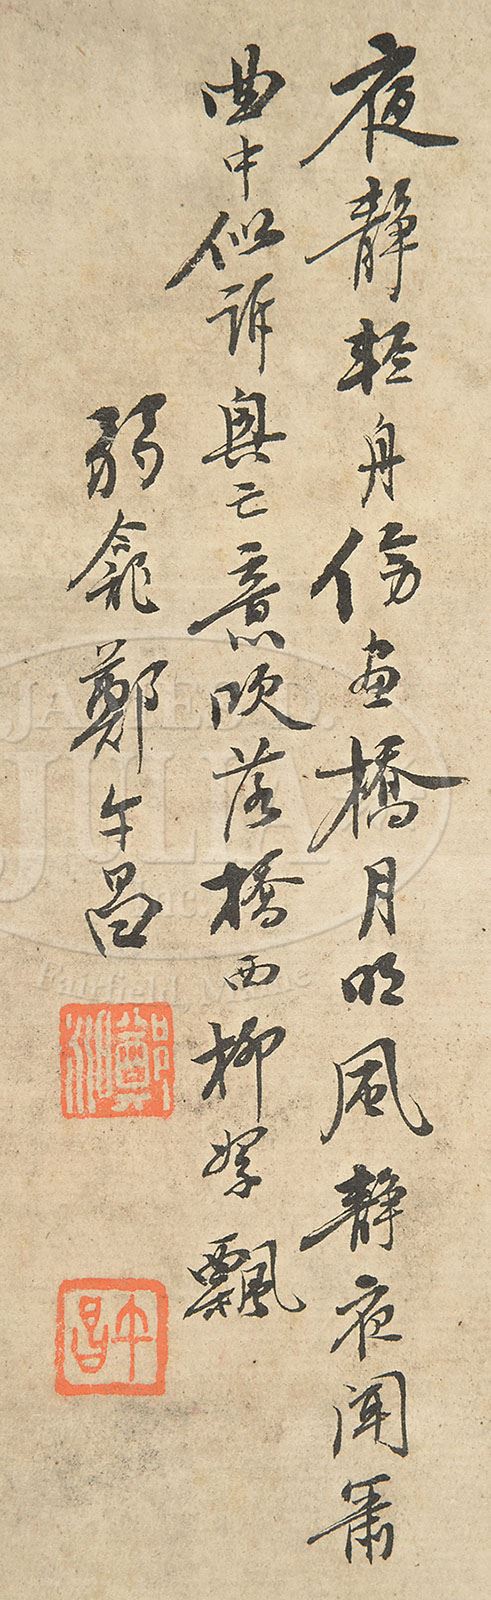 夜靜輕舟傍畫橋月明風靜夜聞簫
曲中似訴興亡意吹落橋西柳絮飄
弱龕鄭午昌
鄭昶
午昌
JAMES D.
JULIA
INC.
Fairfield, Maine